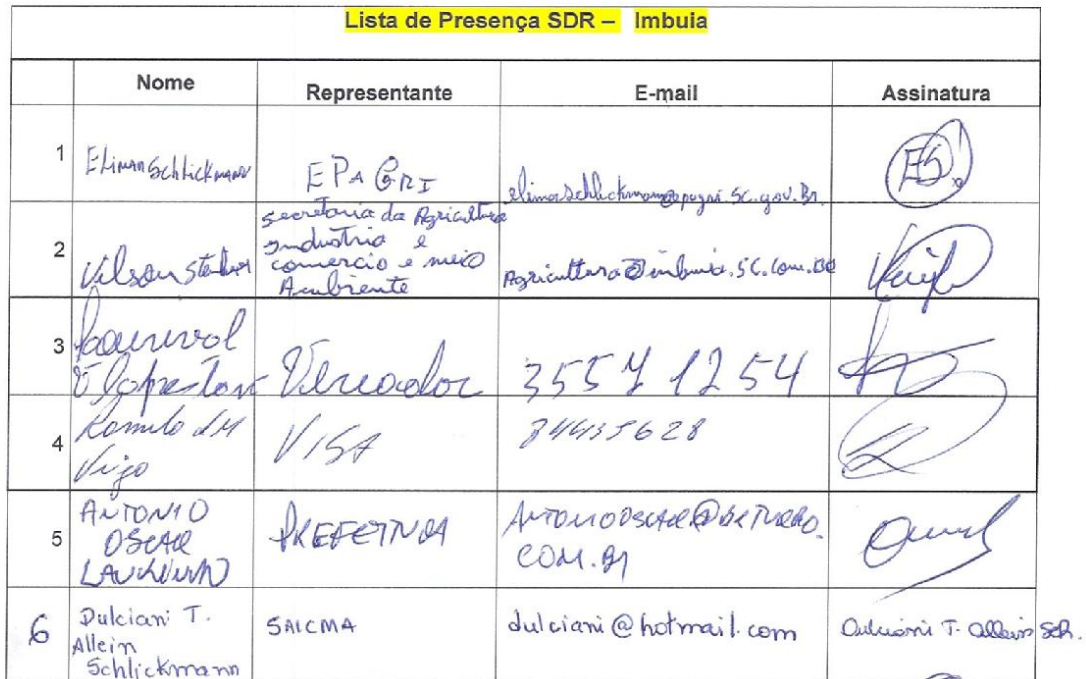 Lista de Presença SDR – Imbuia
Nome Representante E-mail Assinatura
1 Elimar Schlickmann EPAGRI elimarschlickmann@epagri.sc.gov.Br
2 Vilson secretaria da Agricultura
industria e
comercio e meio
Ambiente
Agricultura@imbuia.SC.Com.BR
3 Vereador 3557 1254
4 Romulo
VISA 84435628
5 ANTONIO
OSCAR
PREFEITURA
COM.BR
6 Dulciani T.
Allein
Schlickmann
SAICMA dulciani@hotmail.com Dulciani T. Allein Sch.